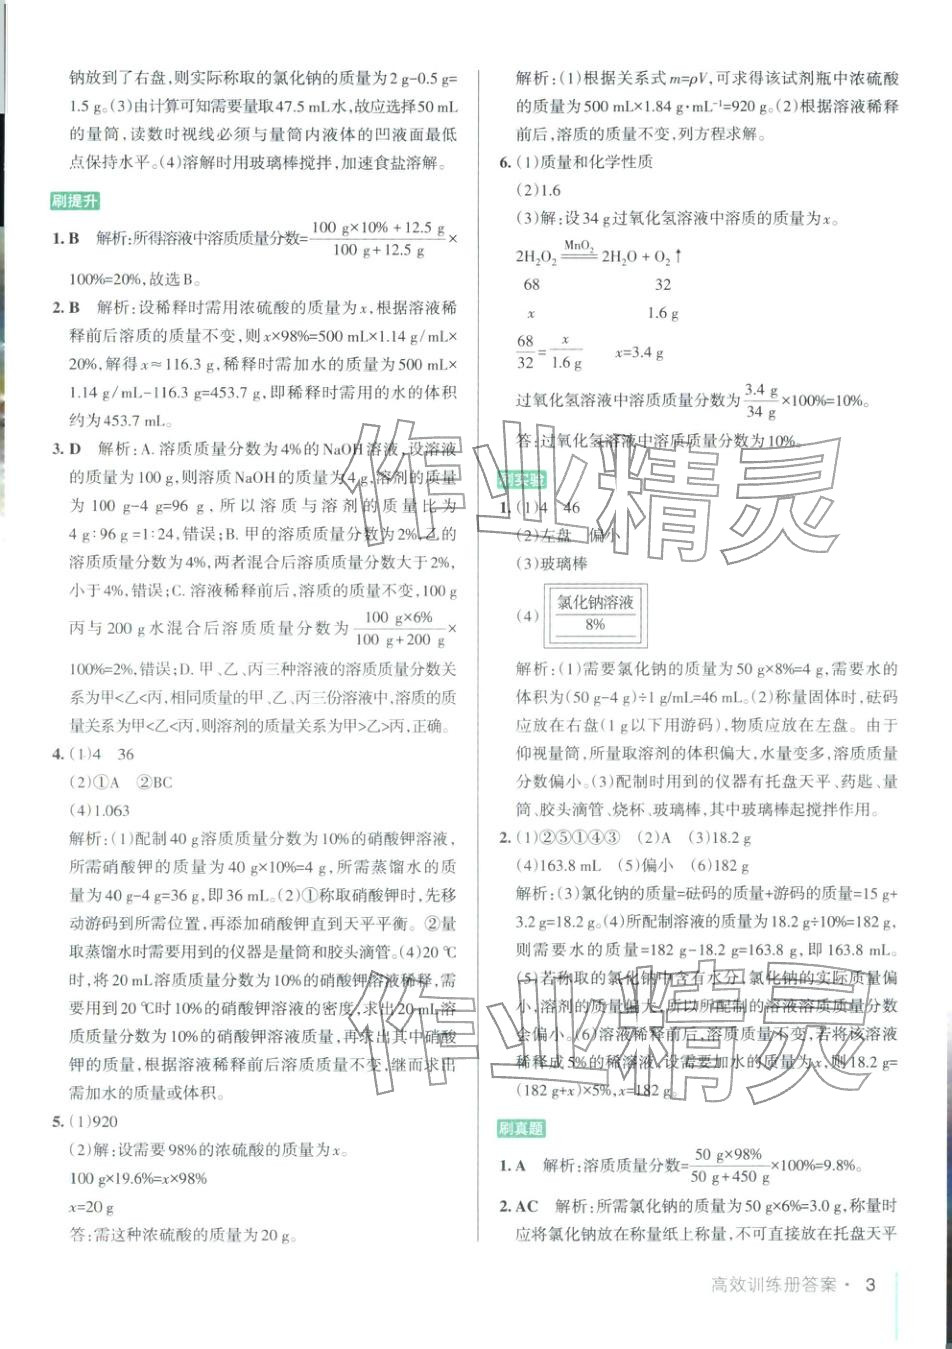 钠放到了右盘,则实际称取的氯化钠的质量为2 g-0.5 g=
1.5 g。(3)由计算可知需要量取47.5 mL水,故应选择50 mL
的量筒,读数时视线必须与量筒内液体的凹液面最低
点保持水平。(4)溶解时用玻璃棒搅拌,加速食盐溶解。
刷提升
1. B 解析:所得溶液中溶质质量分数=(100 g×10%+12.5 g)/(100 g+12.5 g)×
100%=20%,故选B。
2. B 解析:设稀释时需用浓硫酸的质量为x,根据溶液稀
释前后溶质的质量不变,则x×98%=500 mL×1.14 g/mL×
20%,解得x≈116.3 g,稀释时需加水的质量为500 mL×
1.14 g/mL-116.3 g=453.7 g,即稀释时需用的水的体积
约为453.7 mL。
3. D 解析:A.溶质质量分数为4%的NaOH溶液,设溶液
的质量为100 g,则溶质NaOH的质量为4 g,溶剂的质量
为100 g-4 g=96 g,所以溶质与溶剂的质量比为
4 g:96 g=1:24,错误;B.甲的溶质质量分数为2%,乙的
溶质质量分数为4%,两者混合后溶质质量分数大于2%,
小于4%,错误;C.溶液稀释前后,溶质的质量不变,100 g
丙与200 g水混合后溶质质量分数为(100 g×6%)/(100 g+200 g)×
100%=2%,错误;D.甲、乙、丙三种溶液的溶质质量分数关
系为甲<乙<丙,相同质量的甲、乙、丙三份溶液中,溶质的质
量关系为甲<乙<丙,则溶剂的质量关系为甲>乙>丙,正确。
4. (1)4 36
(2)①A ②BC
(4)1.063
解析:(1)配制40 g溶质质量分数为10%的硝酸钾溶液,
所需硝酸钾的质量为40 g×10%=4 g,所需蒸馏水的质
量为40 g-4 g=36 g,即36 mL。(2)①称取硝酸钾时,先移
动游码到所需位置,再添加硝酸钾直到天平平衡。②量
取蒸馏水时需要用到的仪器是量筒和胶头滴管。(4)20 ℃
时,将20 mL溶质质量分数为10%的硝酸钾溶液稀释,需
要用到20 ℃时10%的硝酸钾溶液的密度,求出20 mL溶
质质量分数为10%的硝酸钾溶液质量,再求出其中硝酸
钾的质量,根据溶液稀释前后溶质质量不变,继而求出
需加水的质量或体积。
5. (1)920
(2)解:设需要98%的浓硫酸的质量为x。
100 g×19.6%=x×98%
x=20 g
答:需这种浓硫酸的质量为20 g。
解析:(1)根据关系式m=ρV,可求得该试剂瓶中浓硫酸
的质量为500 mL×1.84 g·mL⁻¹=920 g。(2)根据溶液稀释
前后,溶质的质量不变,列方程求解。
6. (1)质量和化学性质
(2)1.6
(3)解:设34 g过氧化氢溶液中溶质的质量为x。
2H₂O₂ =MnO₂= 2H₂O + O₂↑
68 32
x 1.6 g
68/32=x/1.6 g x=3.4 g
过氧化氢溶液中溶质质量分数为3.4 g/34 g×100%=10%。
答:过氧化氢溶液中溶质质量分数为10%。
1. (1)4 46
(2)左盘 偏小
(3)玻璃棒
(4) 氯化钠溶液
8%
解析:(1)需要氯化钠的质量为50 g×8%=4 g,需要水的
体积为(50 g-4 g)÷1 g/mL=46 mL。(2)称量固体时,砝码
应放在右盘(1 g以下用游码),物质应放在左盘。由于
仰视量筒,所量取溶剂的体积偏大,水量变多,溶质质量
分数偏小。(3)配制时用到的仪器有托盘天平、药匙、量
筒、胶头滴管、烧杯、玻璃棒,其中玻璃棒起搅拌作用。
2. (1)②⑤①④③ (2)A (3)18.2 g
(4)163.8 mL (5)偏小 (6)182 g
解析:(3)氯化钠的质量=砝码的质量+游码的质量=15 g+
3.2 g=18.2 g。(4)所配制溶液的质量为18.2 g÷10%=182 g,
则需要水的质量=182 g-18.2 g=163.8 g,即163.8 mL。
(5)若称取的氯化钠中含有水分,氯化钠的实际质量偏
小,溶剂的质量偏大,所以所配制的溶液溶质质量分数
会偏小。(6)溶液稀释前后,溶质质量不变,若将该溶液
稀释成5%的稀溶液,设需要加水的质量为x,则18.2 g=
(182 g+x)×5%,x=182 g。
刷真题
1. A 解析:溶质质量分数=(50 g×98%)/(50 g+450 g)×100%=9.8%。
2. AC 解析:所需氯化钠的质量为50 g×6%=3.0 g,称量时
应将氯化钠放在称量纸上称量,不可直接放在托盘天平
高效训练册答案·3
作业精灵
作业精灵